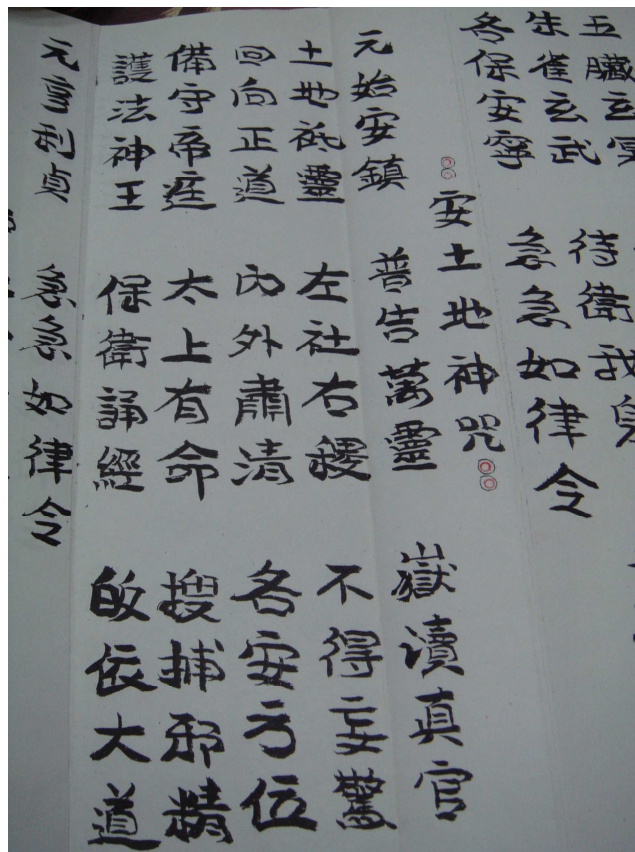 五臟玄冥
朱雀玄武 待衛我身
各保安寧 急急如律令
安土地神咒
元始安鎮 普告萬靈 嶽瀆真官
土地祇靈 左社右稷 不得妄驚
回向正道 內外肅清 各安方位
備守帝庭 太上有命 搜捕邪精
護法神王 保衛誦經 皈依大道
元亨利貞 急急如律令